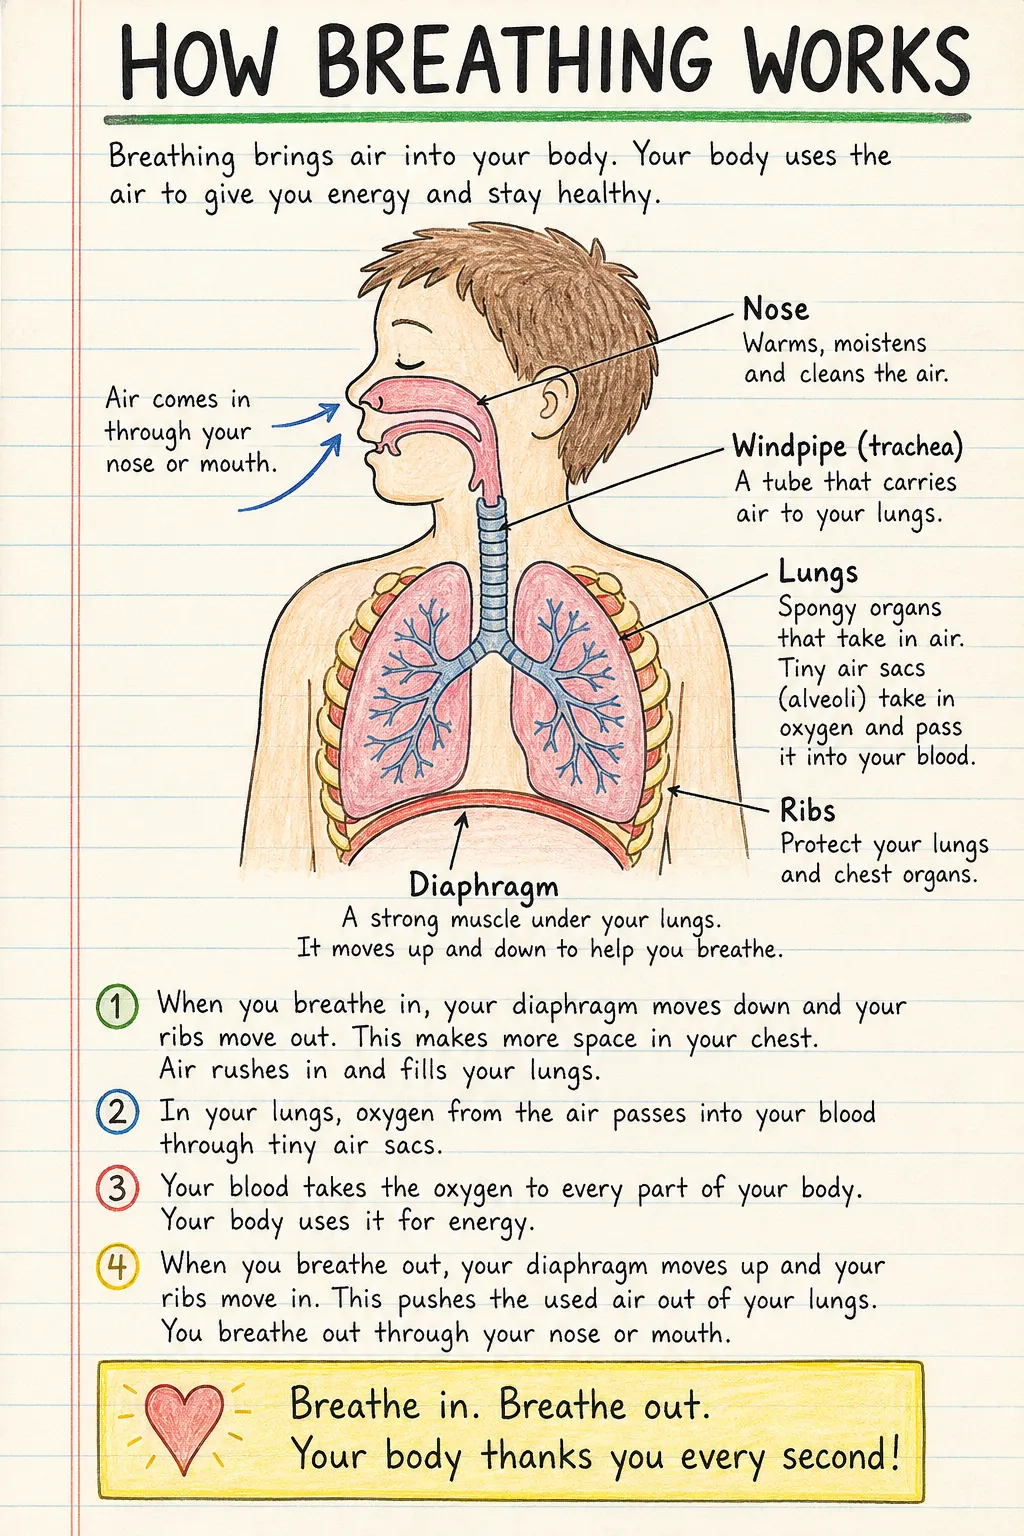 HOW BREATHING WORKS
Breathing brings air into your body. Your body uses the
air to give you energy and stay healthy.
Nose
Warms, moistens
and cleans the air.
Air comes in
through your
nose or mouth.
Windpipe (trachea)
A tube that carries
air to your lungs.
Lungs
Spongy organs
that take in air.
Tiny air sacs
(alveoli) take in
oxygen and pass
it into your blood.
Ribs
Protect your lungs
and chest organs.
Diaphragm
A strong muscle under your lungs.
It moves up and down to help you breathe.
1 When you breathe in, your diaphragm moves down and your
ribs move out. This makes more space in your chest.
Air rushes in and fills your lungs.
2 In your lungs, oxygen from the air passes into your blood
through tiny air sacs.
3 Your blood takes the oxygen to every part of your body.
Your body uses it for energy.
4 When you breathe out, your diaphragm moves up and your
ribs move in. This pushes the used air out of your lungs.
You breathe out through your nose or mouth.
Breathe in. Breathe out.
Your body thanks you every second!